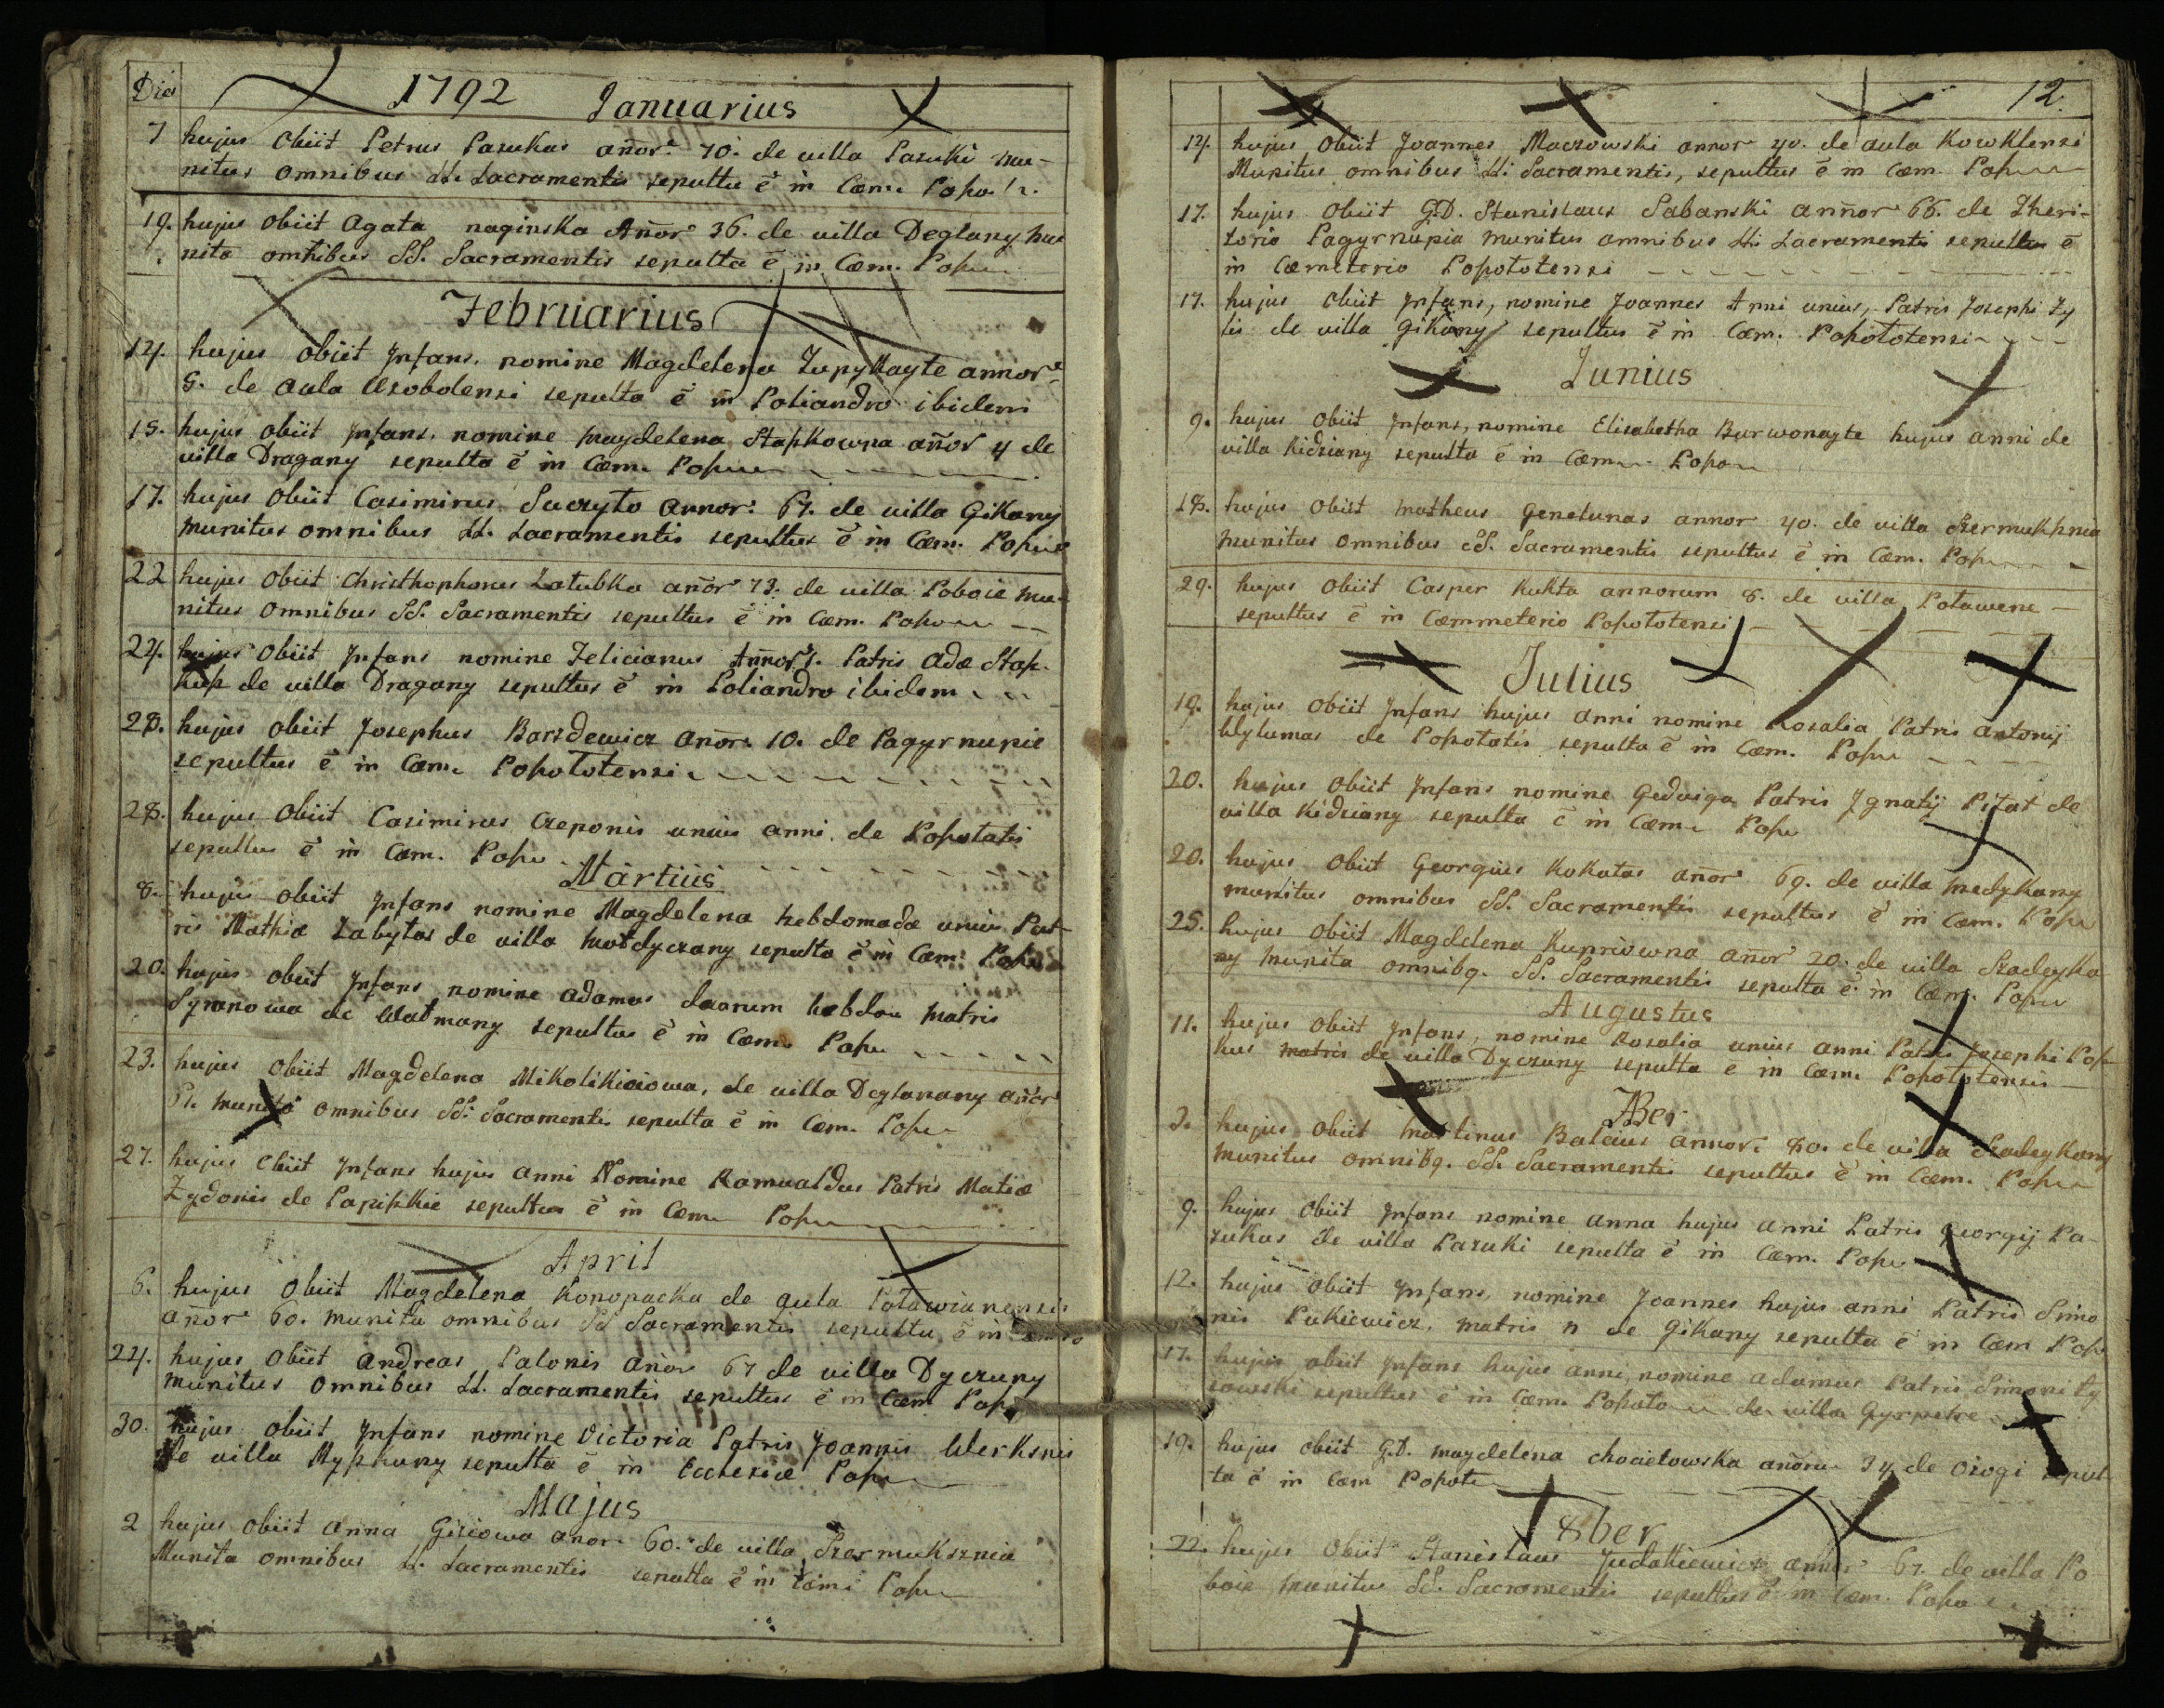 Dies 1792 Januarius
7 hujus obiit Petrus Pazukas añor. 70. de villa Pazuki mu-
nitus omnibus SS. Sacramentis sepultu ē in Cæm. Popo
19. hujus obiit Agata naginska Añor 36. de villa Deglany mu
nita omnibus SS. Sacramentis sepulta ē in Cæm. Pop
Februarius
14. hujus obiit Jnfans, nomine Magdelena annor
de aula sepulta ē in Poliandro ibidem
15. hujus obiit Jnfans, nomine Magdelena Stapkowna añor 4 de
villa Dragany sepulta ē in Cæm. Pop
17. hujus obiit Casimirus Suczyto annor. 67. de villa Gikany
munitus omnibus SS. Sacramentis sepultus ē in Cæm. Pop
22 hujus obiit Christhophorus Latubka añor 73. de villa Poboie mu-
nitus omnibus SS. Sacramentis sepultus ē in Cæm. Popo
24. hujus obiit Jnfans nomine Felicianus Patris Adæ Stap-
de villa Dragany sepultus ē in Poliandro ibidem
28. hujus obiit Josephus Barzdewicz añor. 10. de Pagyrnupie
sepultus ē in Cæm. Popototensi
28. hujus obiit Casimirus Czeponis unius anni de Popotatis
sepultus ē in Cæm. Popo
Martius
8. hujus obiit Jnfans nomine Magdelena hebdomadæ unius Pat-
ris Mathiæ Labytas de villa sepulta ē in Cæm. Pop
20. hujus obiit Jnfans nomine Adamus duorum hebdo Matris
Symanowa de Watmany sepultus ē in Cæm. Pop
23. hujus obiit Magdelena de villa Deglanany añor
munita omnibus SS. Sacramentis sepulta ē in Cæm. Pop
27. hujus obiit Jnfans hujus anni Nomine Ramualdus Patris Matiæ
Zydonis de sepultus ē in Cæm Pop
April
6. hujus obiit Magdelena Konopacka de aula Potawianensis
añor 60. munita omnibus SS Sacramentis sepulta ē in
24. hujus obiit Andreas Palonis añor 67 de villa Dyczuny
munitus omnibus SS. Sacramentis sepultus ē in Cæm Pop
30. hujus obiit Jnfans nomine Victoria Patris Joannis Werksnis
de villa sepulta ē in Ecclesiæ Pop
Majus
2 hujus obiit Anna Giziowa añor. 60. de villa Szermuksznia
Munita omnibus SS. Sacramentis sepulta ē in Pop
12.
14. hujus obiit Joannes Maczowski annor 40. de aula Kowklensi
Munitus omnibus SS. Sacramentis, sepultus ē in Cæm. Pop
17. hujus obiit G.D. Stanislaus Sabanski añnor 66. de Theri-
torio Pagyrnupia munitus omnibus SS. Sacramentis sepultus ē
in Cæmeterio Popototensi
17. hujus obiit Jnfans, nomine Joannes Anni unius, Patris Josephi
de villa Gikany sepultus ē in Cæm. Popototensi
Junius
9. hujus obiit Jnfans, nomine Elisabetha Burwonayte hujus anni de
villa Kidziany sepulta ē in Cæm Popo
18. hujus obiit Matheus Genelunas annor 40. de villa
munitus omnibus SS. Sacramentis sepultus ē in Cæm. Pop
29. hujus obiit Casper Kukta annorum 8. de villa Potawene
sepultus ē in Cæmmeterio Popototensi
Julius
hujus obiit Jnfans hujus anni nomine Rosalia Patris Antonij
de Popotatis sepulta ē in Cæm. Pop
20. hujus obiit Jnfans nomine Gedviga Patris Jgnatij de
villa Kidziany sepulta ē in Cæm Pop
20. hujus obiit Georgius Kokatas añor 69. de villa Medykany
munitus omnibus SS. Sacramentis sepultus ē in Cæm. Pop
25. hujus obiit Magdelena Kupriowna añor 20. de villa Szadeyka
ny munita omnibq. SS. Sacramentis sepulta ē in Cæm. Pop
Augustus
11. hujus obiit Jnfans, nomine Rosalia unius anni Patris Josephi Pop
kus matris de villa Dyczuny sepulta e in Cæm. Popototensis
7Ber
3. hujus obiit Martinus annor. 80. de villa Szadeykany
munitus omnibq. SS. Sacramentis sepultus ē in Cæm. Pop
9. hujus obiit Jnfans nomine Anna hujus anni Patris Georgij Pa-
zukas de villa Pazuki sepulta ē in Cæm. Pop
12. hujus obiit Jnfans, nomine Joannes hujus anni Patris Simo
nis Pukiewicz, matris n de Gikany sepulta ē in Cæm Pop
17. hujus obiit Jnfans hujus anni, nomine Adamus Patris Simoni
sepultus ē in Cæm. Popoto de villa
19. hujus obiit G.D. Magdelena Chocietowska añoru 34 de Ozogi sepul
ta ē in Cæm Popot
8ber
22. hujus obiit Stanislaus annor 67. de villa Po
boie munitus SS. Sacramentis sepultus ē in Cæm. Popo